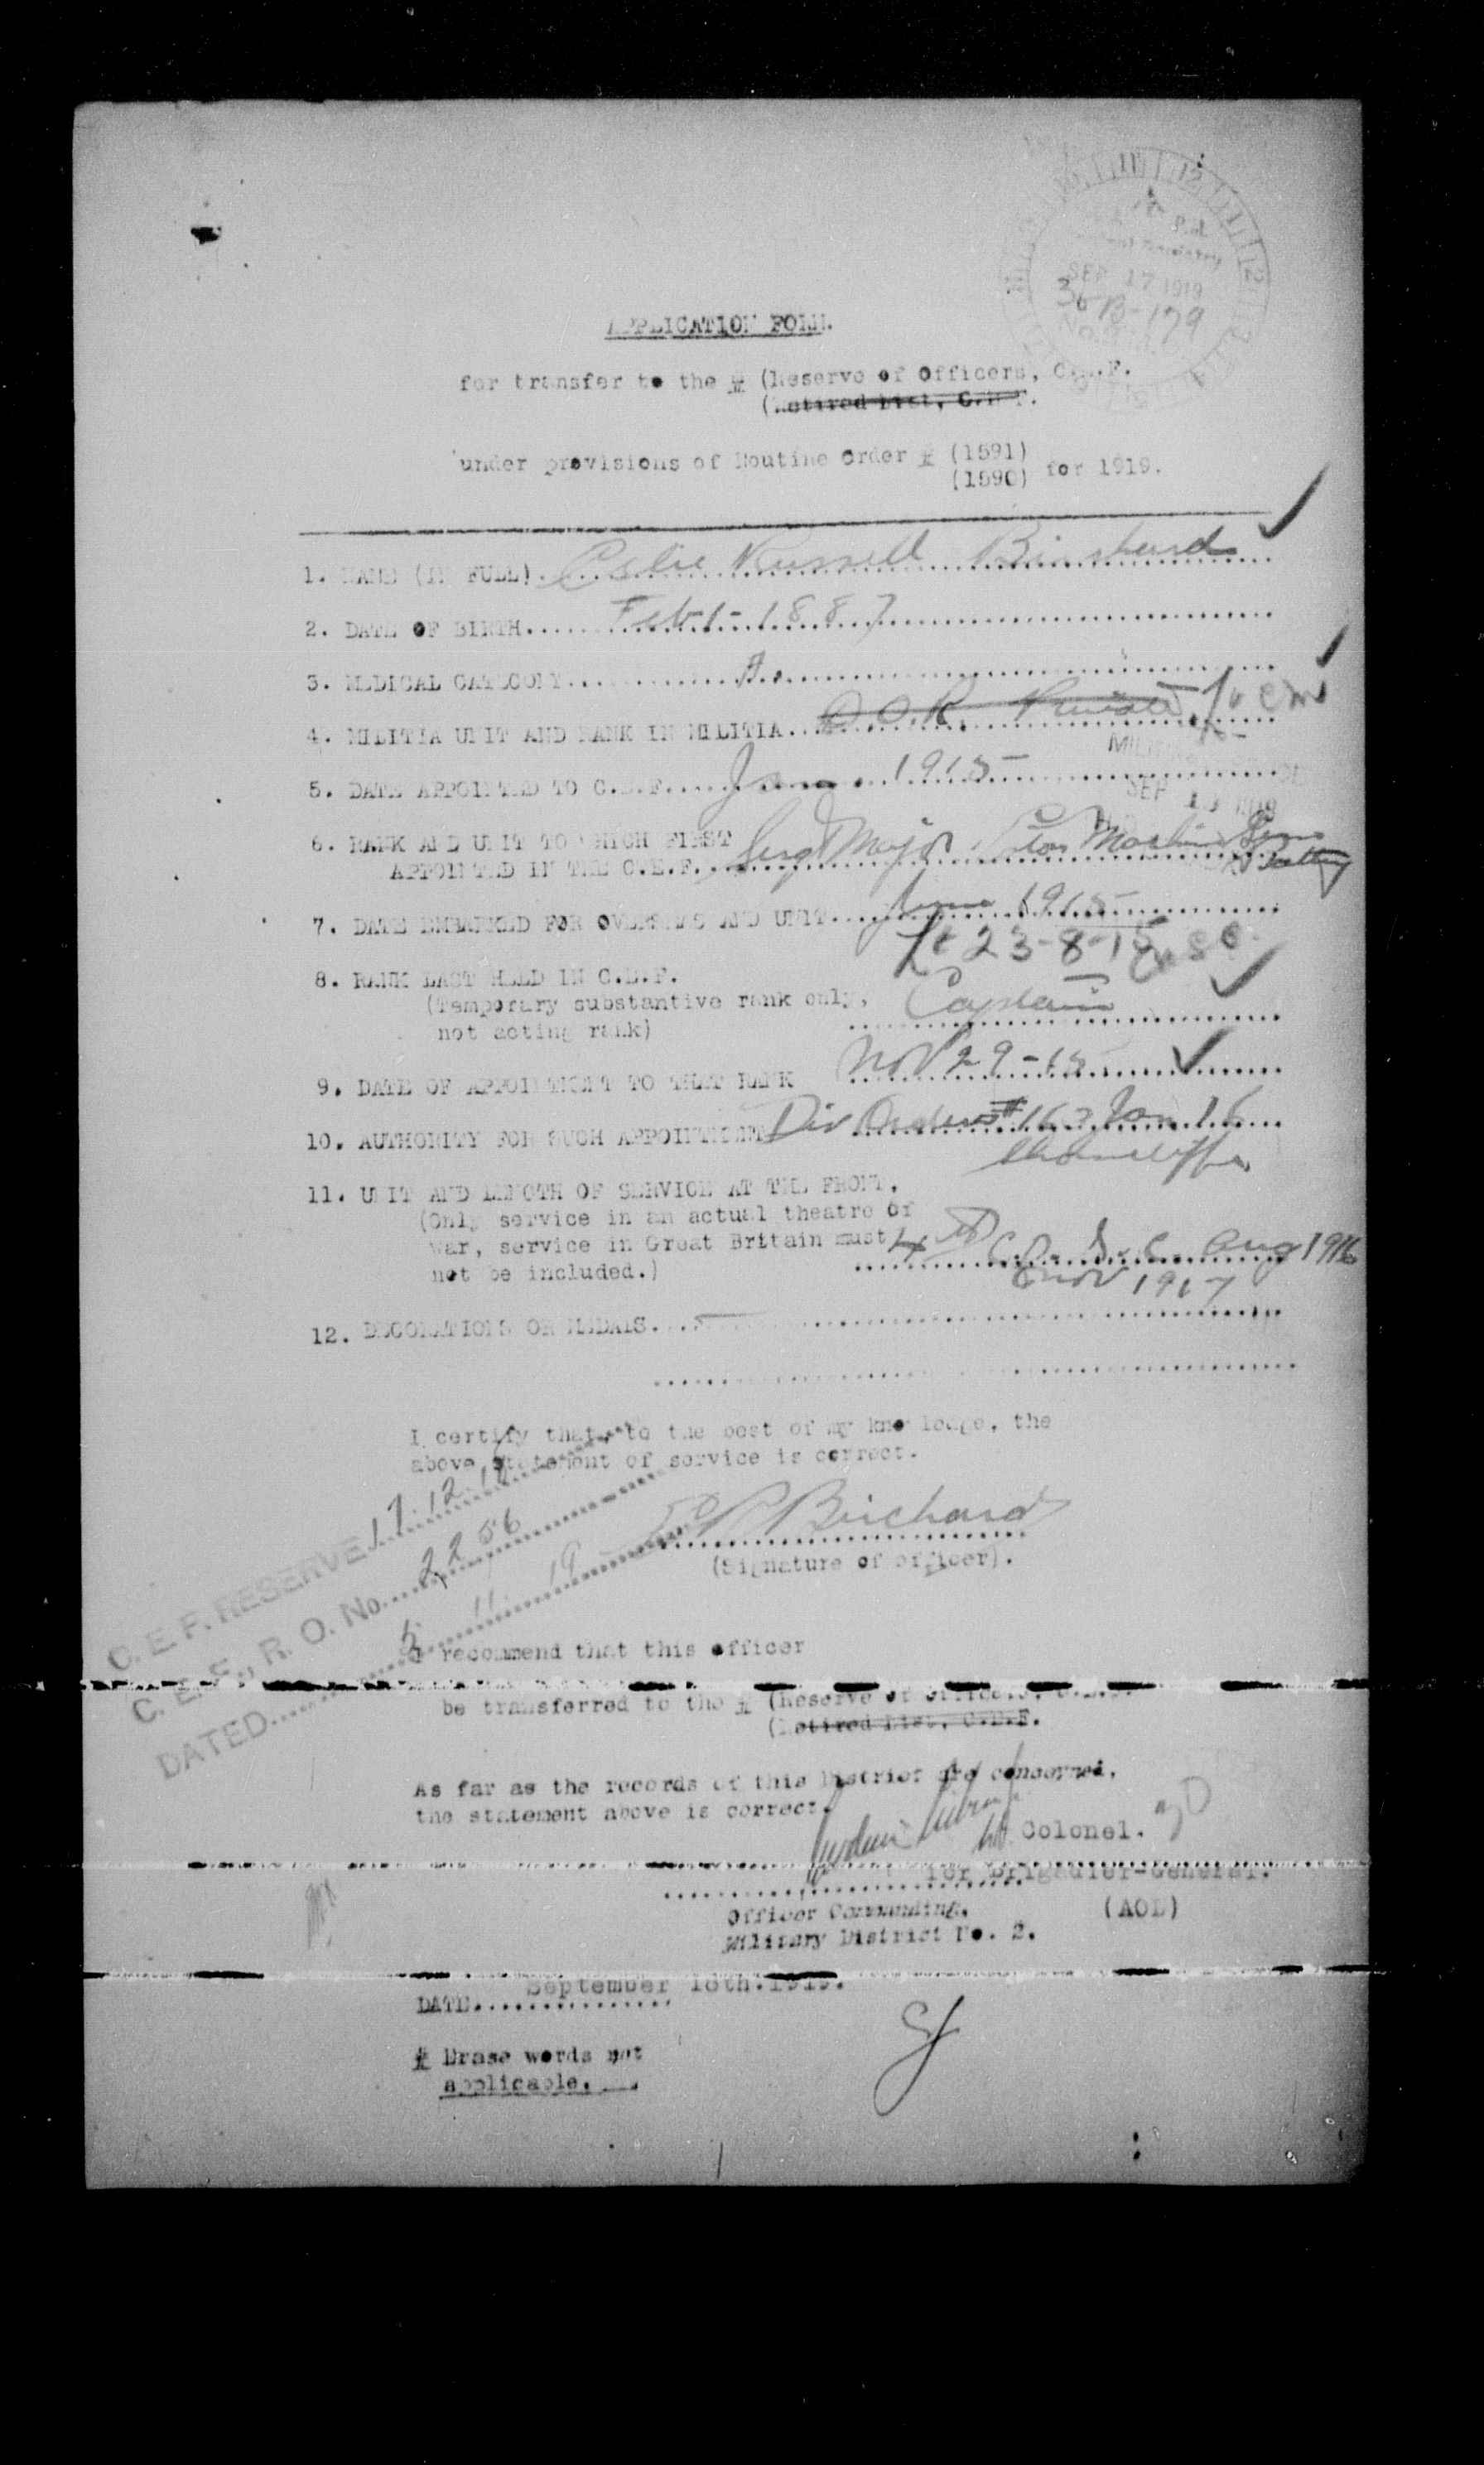 SEP 17 1919
36-B-179
APPLICATION FORM.
for transfer to the # (Reserve of Officers, C.E.F.
(Retired List, C.E.F.
under provisions of Routine Order # (1591)
(1590) for 1919.
1. NAME (IN FULL) Leslie Russell Birchard
2. DATE OF BIRTH Feb 1 - 1887
3. MEDICAL CATEGORY A.
4. MILITIA UNIT AND RANK IN MILITIA Q O R Private
5. DATE APPOINTED TO C.E.F. 1915
6. RANK AND UNIT TO WHICH FIRST
APPOINTED IN THE C.E.F. Sergt Major Eaton Machine Gun
Battery
7. DATE EMBARKED FOR OVERSEAS AND UNIT June 1915
Lt 23-8-15
8. RANK LAST HELD IN C.E.F.
(Temporary substantive rank only, Captain
not acting rank)
9. DATE OF APPOINTMENT TO THAT RANK Nov 29 - 15
10. AUTHORITY FOR SUCH APPOINTMENT Div Orders # 163 Jan 16
Shorncliffe
11. UNIT AND LENGTH OF SERVICE AT THE FRONT,
(Only service in an actual theatre of
war, service in Great Britain must 4th Aug 1916
not be included.) Nov 1917
12. DECORATIONS OR MEDALS
I certify that to the best of my knowledge, the
above statement of service is correct.
L R Birchard
(Signature of officer).
C. E. F. RESERVE 17.12.18
C. E. F., R. O. No. 2256
DATED 5 11 19
I recommend that this officer
be transferred to the # (Reserve of Officers, C.E.F.
(Retired List, C.E.F.
As far as the records of this District are concerned,
the statement above is correct.
Lt Colonel.
for Brigadier-General.
Officer Commanding, (AOL)
Military District No. 2.
DATE September 18th.1919.
# Erase words not
applicable.